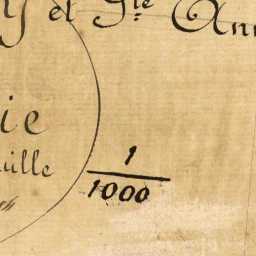 y et Ste Ann
ie
uille
1
1000